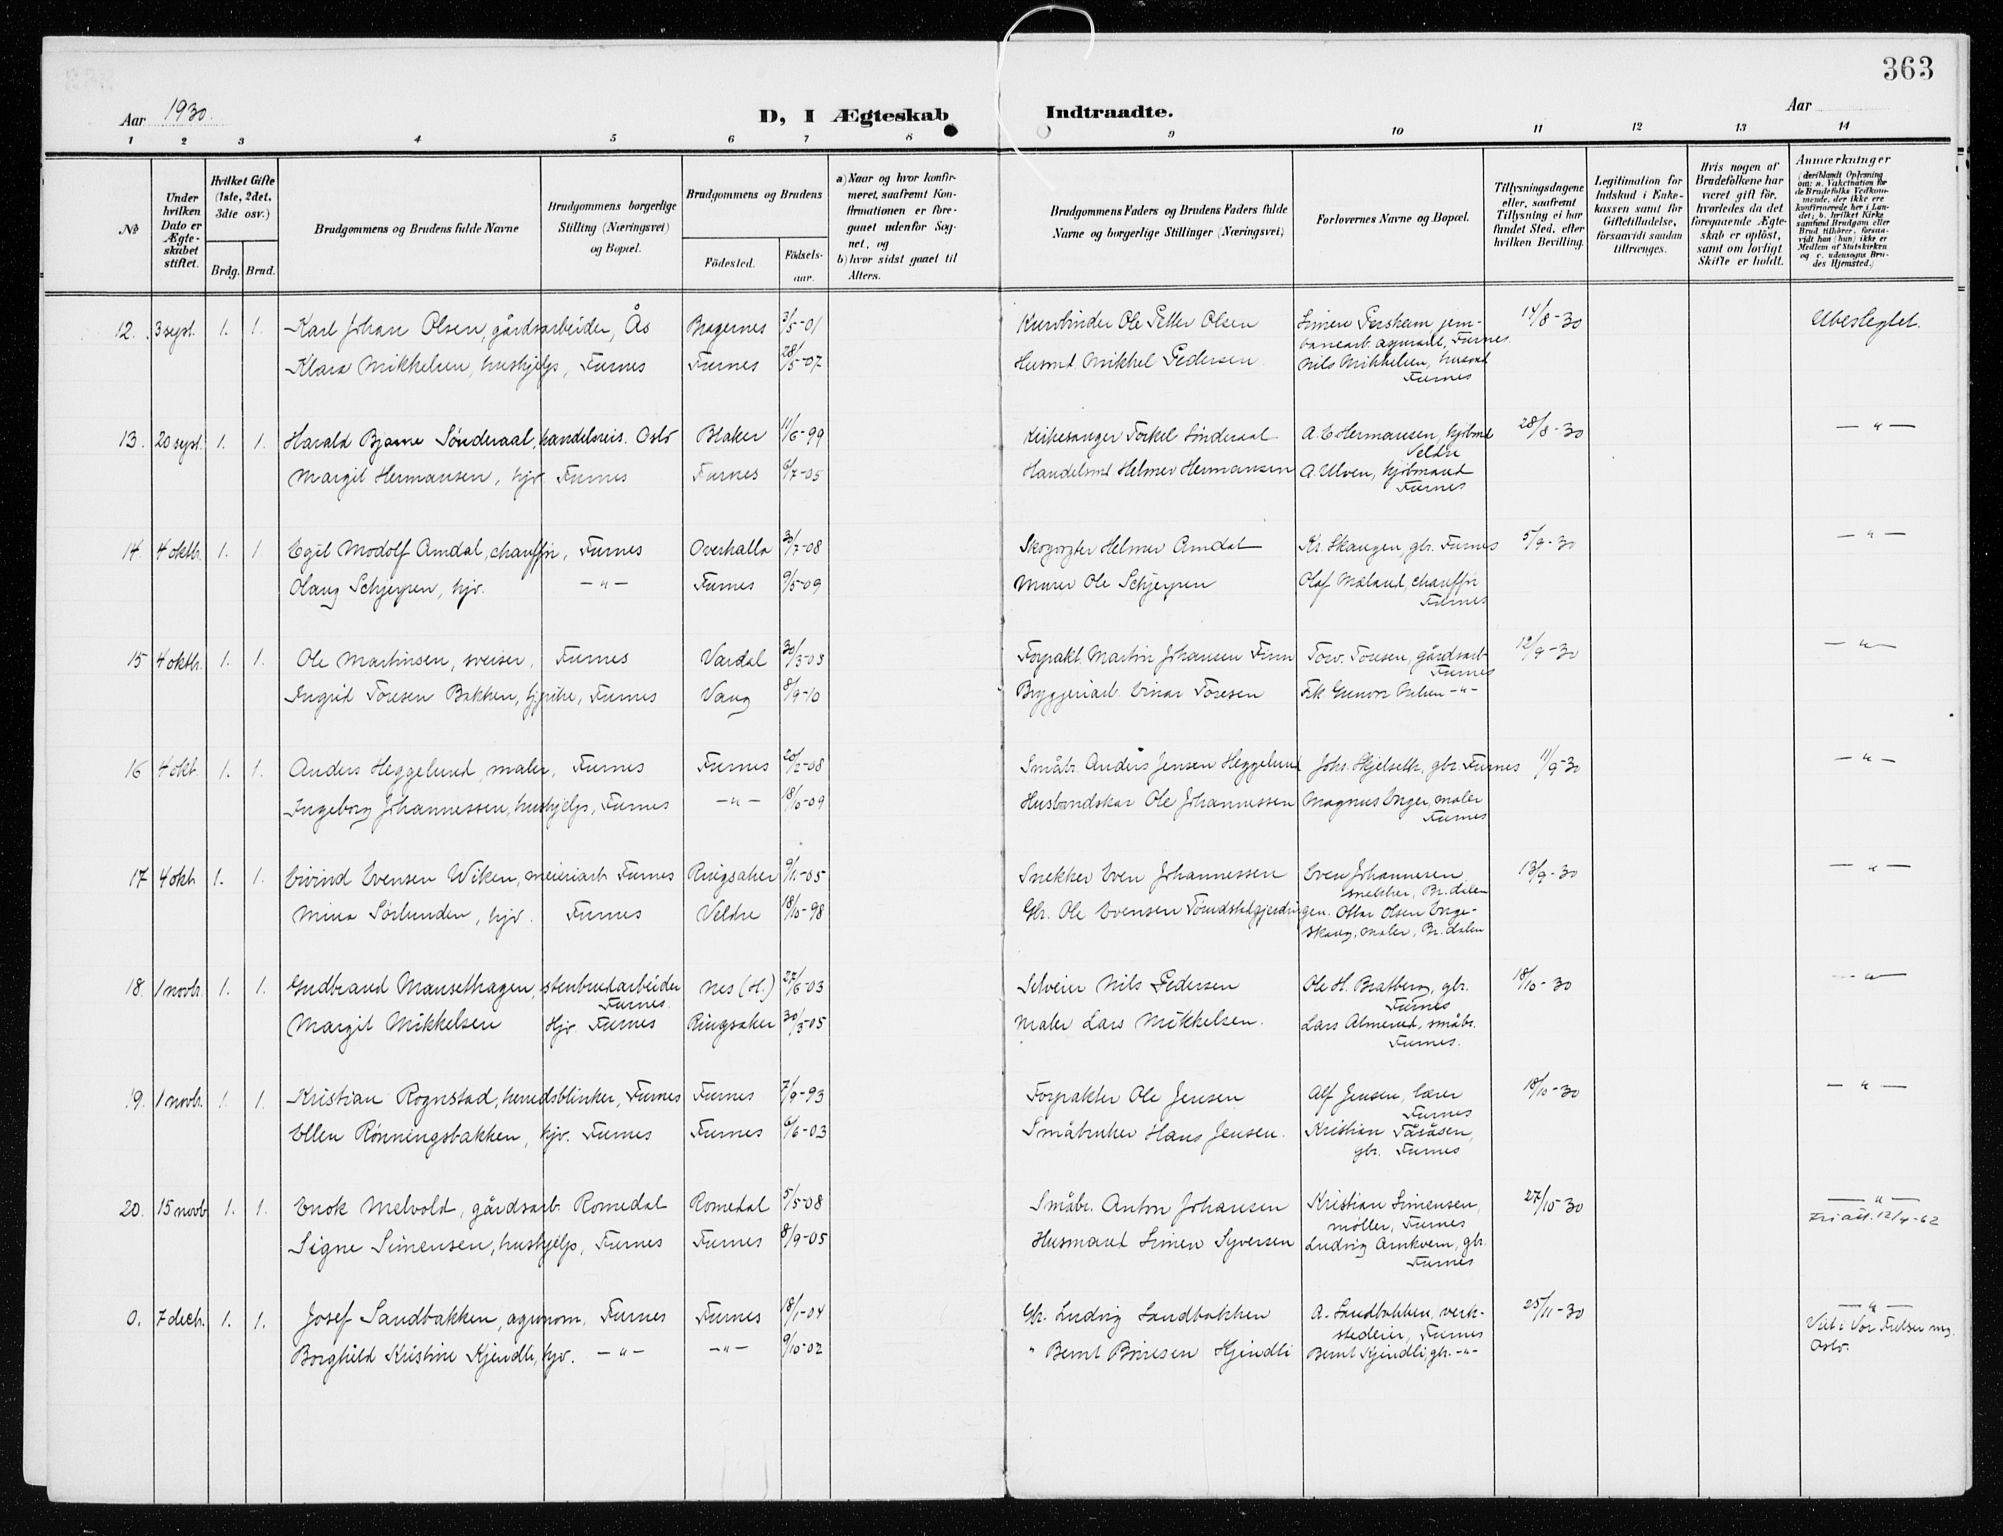 363
Aar 1930.
D, I Ægteskab Indtraadte.
Aar
1 2 3 4 5 6 7 8 9 10 11 12 13 14
No
Under hvilken Dato er Ægteskabet stiftet.
Hvilket Gifte (1ste, 2det, 3die osv.)
Brdg. Brud.
Brudgommens og Brudens fulde Navne
Brudgommens borgerlige Stilling (Næringsvei) og Bopæl.
Brudgommens og Brudens
Födested. Födselsaar.
a) Naar og hvor konfirmeret, saafremt Konfirmationen er foregaaet udenfor Sognet, og
b) hvor sidst gaaet til Alters.
Brudgommens Faders og Brudens Faders fulde Navne og borgerlige Stillinger (Næringsvei)
Forlovernes Navne og Bopæl.
Tillysningsdagene eller, saafremt Tillysning ei har fundet Sted, efter hvilken Bevilling.
Legitimation for Indskud i Enkekassen samt for Giftetilladelse, forsaavidt saadan tiltrænges.
Hvis nogen af Brudefolkene har været gift før, hvorledes da det foregaaende Ægteskab er opløst, samt om lovligt Skifte er holdt.
Anmærkninger (deriblandt Oplysning om: a. Vakcination for de Brudefolks Vedkommende, der ikke ere konfirmerede her i Landet; b. hvilket Kirkesamfund Brudgom eller Brud tilhører, forsaavidt han (hun) ikke er Medlem af Statskirken og c. udensogns Brudes Hjemsted.)
12. 3 sept. 1. 1. Karl Johan Olsen, gårdsarbeider, Ås Bragernes 3/5-01 Kurvbinder Ole Petter Olsen Simen 14/8-30 Ubeslegtet.
Klara Mikkelsen, hushjelp, Furnes Furnes 28/5-07 Husmd. Mikkel Pedersen Nils Mikkelsen,
Furnes
13. 20 sept. 1. 1. Harald Bjarne Sönderaal, handelsreis. Oslo Blaker 11/6-99 Kirkesanger Torkel Sönderaal A. E Hermansen, kjöbmd 28/8-30 —"—
Veldre
Margit Hermansen, hjv. Furnes Furnes 6/7-05 Handelsmd Helmer Hermansen A. Ulven, kjöbmand
Furnes
14. 4 oktb. 1. 1. Egil Modolf Amdal, chauffør, Furnes Overhalla 30/7-08 Skogvogter Helmer Amdal Kr. Skaugen, gbr. Furnes 5/9-30 —"—
Olaug Schjerpen, hjv. —"— Furnes 9/5-09 Murer Ole Schjerpen Olaf Mæland, chauffør
Furnes
15 4 oktb. 1. 1. Ole Martinsen, sveiser, Furnes Vardal 30/3-03 Forpakt. Martin Johansen Finn Torv. Toresen, gårdsarb 12/9-30 —"—
Furnes
Ingrid Toresen Bakken, Furnes Vang 8/9-10 Bryggeriarb. Einar Toresen Frk Gunvor —"—
16 4 okt. 1. 1. Anders Heggelund, maler, Furnes Furnes 20/2-08 Småbr. Anders Jensen Heggelund Johs. Skjelseth, gbr. Furnes 11/9-30 —"—
Ingeborg Johannessen, hushjelp, Furnes —"— Ole Johannessen Magnus Unger, maler
Furnes
17 4 okt 1. 1. Eivind Evensen Wiken, meieriarb. Furnes Ringsaker 9/11-05 Snekker Even Johannessen Even Johannesen 13/9-30 —"—
snekker, Br.dalen
Mina Sörlunden, hjv. Furnes Veldre 18/10-98 Gbr. Ole Evensen Ottar Olsen Enge-
skaug, maler, Br.dalen
18. 1 novbr. 1. 1. Gudbrand Mansethagen, stenbrudarbeider Nes (H.) 27/6-03 Selveier Nils Pedersen Ole H. Bratberg, gbr. 18/10-30 —"—
Furnes. Furnes
Margit Mikkelsen Hjv. Furnes Ringsaker 30/3-05 Maler Lars Mikkelsen. Lars Almerud, småbr.
Furnes.
19. 1 novbr. 1. 1. Kristian Rognstad, herredsblinker, Furnes Furnes 7/9-93 Forpakter Ole Jensen Alf Jensen, lærer 18/10-30 —"—
Furnes
Ellen Rønningsbakken, hjv. Furnes Furnes 6/6-03 Småbruker Hans Jensen. Kristian Tåsåsen,
gbr. Furnes
20. 15 novb 1. 1. Enok Melvold, gårdsarb. Romedal Romedal 5/5-08 Småbr. Anton Johansen Kristian Simensen, 27/10-30 —"—
møller, Furnes Fri att. 12/4-62
Signe Simensen, hushjelp, Furnes Furnes 8/9-05 Husmand Simen Syversen Ludvig Arnkvern, gbr.
Furnes
0. 7 decb. 1. 1. Josef Sandbakken, agronom, Furnes Furnes 18/1-04 Gbr. Ludvig Sandbakken A. Sandbakken, verk- 25/11-30 —"—
stedeier, Furnes Viet i Vor Frelser mg.
Borghild Kristine Kjendli, hjv. —"— —"— 9/10-02 " Bernt Börresen Kjendli Bernt Kjendli, gbr. —"— Oslo.